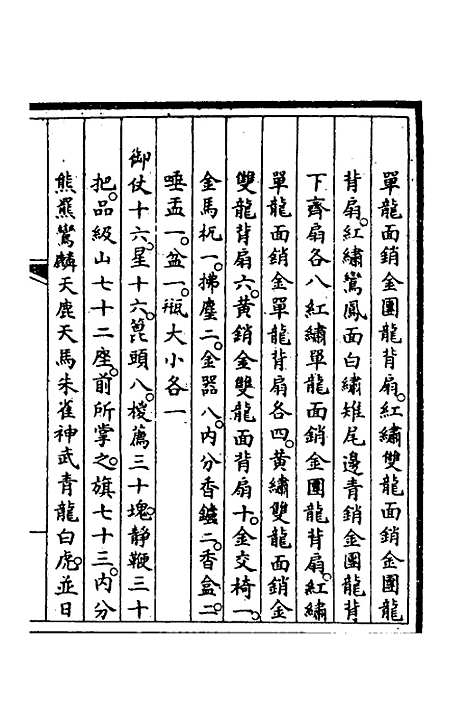 單龍面銷金團龍背扇。紅繡雙龍面銷金團龍
背扇。紅繡鸞鳳面白繡雉尾邊青銷金團龍背
下齊扇各八紅繡單龍面銷金團龍背扇。紅繡
單龍面銷金單龍背扇各四。黃繡雙龍面銷金
雙龍背扇六。黃銷金雙龍面背扇十。金交椅一。
金馬杌一。拂塵二。金器八。內分香鑪二。香盒二。
唾盂一。盆一。瓶大小各一
御仗十六。星十六。箆頭八。椶薦三十塊。靜鞭三十
把。品級山七十二座。前所掌之。旗七十三。內分
熊羆鸞麟天鹿天馬朱雀神武青龍白虎。並日